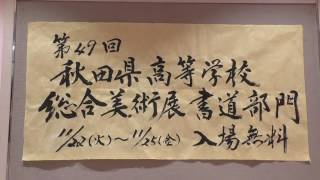 第49回
秋田県高等学校
総合美術展書道部門
11/22(火)～11/25(金) 入場無料